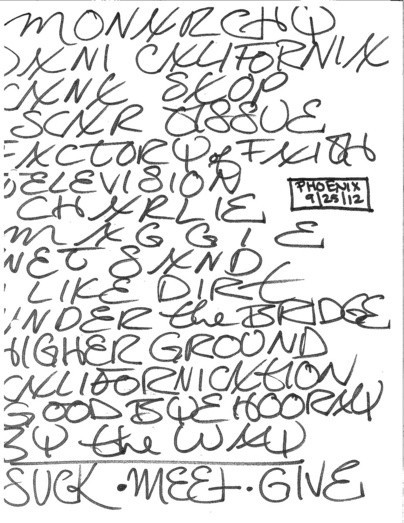 MONARCHY
DANI CALIFORNIA
CANT STOP
SCAR TISSUE
FACTORY of FAITH
TELEVISION
PHOENIX
9/25/12
CHARLIE
MAGGIE
WET SAND
I LIKE DIRT
UNDER the BRIDGE
HIGHER GROUND
CALIFORNICATION
GOODBYE HOORAY
BY the WAY
SUCK · MEET · GIVE